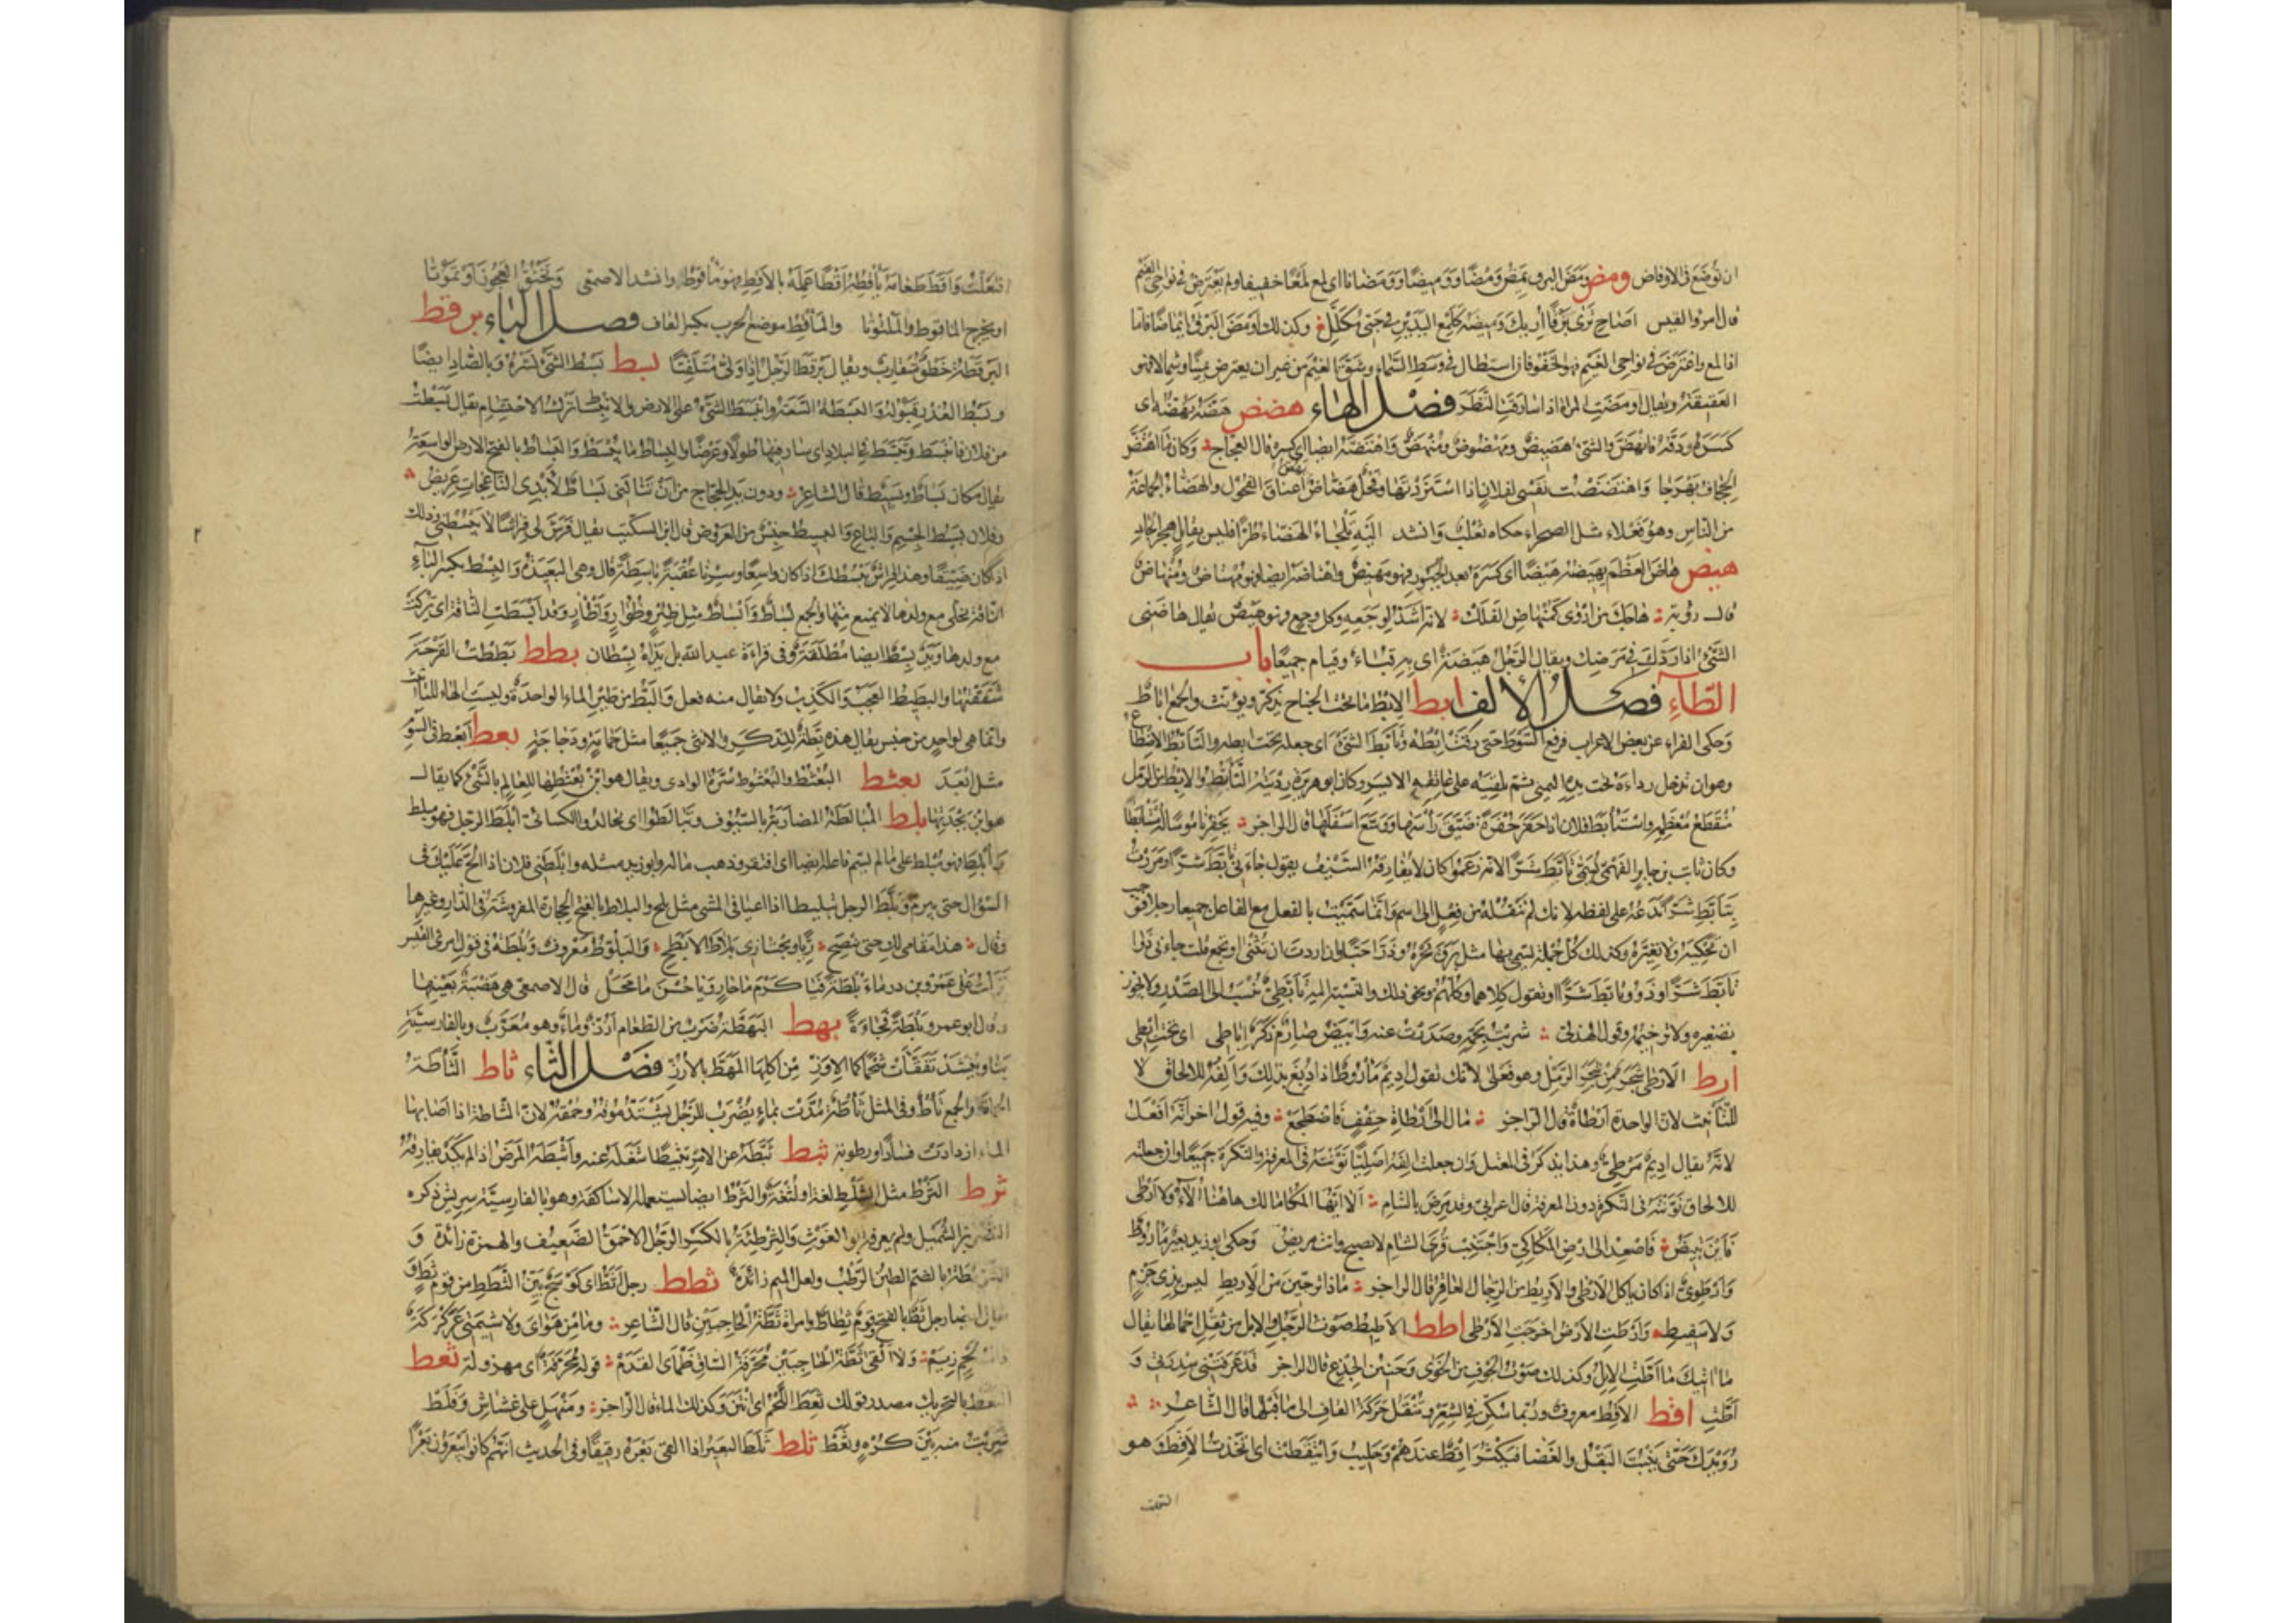 ان توضع فى الاوفاض ومض ومض البرق يمض ومضا ووميضا وومضانا اى لمع لمعا خفيفا ولم يعترض فى نواحى الغيم
قال امرؤ القيس اصاح ترى برقا اريك وميضه كلمع اليدين فى حبى مكلل وكذلك اومض البرق ايماضا فاما
اذا لمع واعترض فى نواحى الغيم فهو الخفو فان استطال فى وسط السماء وشق الغيم من غير ان يعترض يمينا وشمالا فهو
العقيقة ويقال اومضت المراة اذا سارقت النظر فصل الهاء هضض هضه يهضه اى
كسره ودقه فانهض والشئ هضيض ومهضوض ومنهض واهتضه ايضا اى كسره قال العجاج وكان ما اهتض
الجحاف بهرجا واهتضضت نفسى لفلان اذا استزدتها وفحل هضاض يهض اعناق الفحول والهضاء الجماعة
من الناس وهو فعلاء مثل الصحراء حكاه ثعلب وانشد اليه تلجاء الهضاء طرا فليس بقايل هجرا لجادى
هيض هاض العظم يهيضه هيضا اى كسره بعد الجبور فهو مهيض واهتاضه ايضا فهو مهتاض ومنهاض
قال رؤبة هاجك من اروى كمنهاض الفكك لانه اشد لوجعه وكل وجع فهو هيض يقال هاضنى
الشئ اذا ردك فى مرضك ويقال بالرجل هيضة اى به قياء وقيام جميعا باب
الطاء فصل الالف ابط الابط ما تحت الجناح يذكر ويؤنث والجمع اباط
وحكى الفراء عن بعض الاعراب فرفع السوط حتى برقت ابطه وتابط الشئ اى جعله تحت ابطه والتابط الاضطباع
وهو ان تدخل رداءه تحت يده اليمنى ثم يلقيه على عاتقه الايسر وكان ابو هريرة رديته التابط والابط من الرمل
منقطع معظمه واستابط فلان اذا حفر حفرة ضيق راسها ووسع اسفلها قال الراجز يحفر ناموسا له مستابطا
وكان ثابت بن جابر الفهمى يسمى تابط شرا لانه زعموا كان لا يفارقه السيف يقول جاءنى تابط شرا ومررت
بتابط شرا تدعه على لفظه لانك لم تنقله من فعل الى اسم وانما سميت بالفعل مع الفاعل جميعا رجلا فوجب
ان تحكيه ولا تغيره وكذلك كل جملة تسمى بها مثل برق نحره وذرا حبا وان اردت ان تثنى او تجمع قلت جاءنى ذوا
تابط شرا وذوو تابط شرا او تقول كلاهما وكلهم ونحو ذلك والنسبة اليه تابطى تنسب الى الصدر ولا يجوز
تصغيره ولا ترخيمه وقول الهذلى شربت بجمه وصدرت عنه وابيض صارم ذكر اباطى اى تحت ابطى
ارط الارطى شجر من شجر الرمل وهو فعلى لانك تقول اديم ماروط اذا دبغ بذلك والفه للالحاق لا
للتانيث لان الواحدة ارطاة قال الراجز مال الى ارطاة حقف فاضطجع وفيه قول اخر انه افعل
لانه يقال اديم مرطى وهذا يذكر فى المعتل وان جعلت الفه اصليا نونته فى المعرفة والنكرة جميعا وان جعلته
للالحاق نونته فى النكرة دون المعرفة قال اعرابى وقد مرض بالشام الا ايها المكاء مالك هاهنا الاء ولا ارطى
فاين تبيض فاصعد الى ارض المكاكى واجتنب قرى الشام لا تصبح وانت مريض وحكى ابو زيد بعير ماروط
وارطوى اذا كان ياكل الارطى والاريط من الرجال العاقر قال الراجز ماذا ترجين من الاريط ليس بذى حزم
ولا سفيط وارطت الارض اخرجت الارطى اطط الاطيط صوت الرحل والابل من ثقل احمالها يقال
ما اتيك ما اطت الابل وكذلك صوت الجوف من الخوى وحنين الجذع قال الراجز قد عرفتنى سدرتى و
اطت اقط الاقط معروف وربما سكن فى الشعر وتنقل حركة القاف الى ما قبلها قال الشاعر
رويدك حتى ينبت البقل والغضا فيكثر اقط عندهم وحليب وايتقطت اى تخذت الاقط وهو
افتعلت
افتعلت واقط طعامه ياقطه اقطا عمله بالاقط فهو ماقوط وانشد الاصمعى وتخنق العجوز او تموتا
او يخرج الماقوط والملتوتا والماقط موضع الحرب بكسر القاف فصل الباء برقط
البرقطة خطو متقارب ويقال برقط الرجل اذا ولى متلفتا بسط بسط الشئ نشره وبالصاد ايضا
وبسط العذر قبوله والبسطة السعة وانبسط الشئ على الارض والانبساط ترك الاحتشام يقال بسطت
من فلان فانبسط وتبسط فى البلاد اى سار فيها طولا وعرضا والبساط ما يبسط والبساط بالفتح الارض الواسعة
يقال مكان بساط وبسيط قال الشاعر ودون يد الحجاج من ان تنالنى بساط لايدى الناعجات عريض
وفلان بسيط الجسم والباع والبسيط جنس من العروض قال ابن السكيت يقال فرش لى فراشا لا يبسطنى وذلك
اذا كان ضيقا وهذا فراش يبسطك اذا كان واسعا وسرنا عقبة باسطة قال وهى البعيدة والبسط بكسر الباء
الناقة تخلى مع ولدها لا يمنع منها والجمع بساط وابساط مثل ظئر وظؤار واظار وقد ابسطت الناقة اى تركت
مع ولدها ويد بسط ايضا مطلقة وفى قراءة عبد الله بل يداه بسطان بطط بططت القرحة
شققتها والبطيط العجب والكذب ولا يقال منه فعل والبط من طير الماء الواحدة وليست الهاء للتانيث
وانما هى لواحد من جنس يقال هذه بطة للذكر والانثى جميعا مثل حمامة ودجاجة بعط ابعط فى السوم
مثل ابعد بعثط البعثط والبعثوط سرة الوادى ويقال هو ابن بعثطها للعالم بالشئ كما يقال
هو ابن بجدتها بلط المبالطة المضاربة بالسيوف وتبالطوا اى تجالدوا الكسائى ابلط الرجل فهو مبلط
وابلط فهو مبلط على ما لم يسم فاعله ايضا اى افتقر وذهب ماله وابو زيد مثله وابلطنى فلان اذا الح عليك فى
السؤال حتى يبرم وبلط الرجل تبليطا اذا اعيا فى المشى مثل بلح والبلاط بالفتح الحجارة المفروشة فى الدار وغيرها
وقال هذا مقامى لك حتى تنضح ريا وتجتازى بلاط الابطح والبلوط معروف وبلطة فى قول امرئ القيس
نزلت على عمرو بن درماء بلطة فيا كرم ما جار ويا حسن ما محل قال الاصمعى هى هضبة بعينها
وقال ابو عمرو بلطة فجاءة بهط البهطة ضرب من الطعام ارز وماء وهو معرب وبالفارسية
بتا وينشد تفقات شحما كما الاوز من اكلها البهط بالارز فصل الثاء ثاط الثاطة
الحماة والجمع ثاط وفى المثل ثاطة مدت بماء يضرب للرجل يشتد موقه وحمقه لان الثاطة اذا اصابها
الماء ازدادت فسادا ورطوبة ثبط ثبطه عن الامر تثبيطا شغله عنه واثبطه المرض اذا لم يكد يفارقه
ثرط الثرط مثل الثلط لغة او لثغة والثرط ايضا ليستعمله الاساكفة وهو بالفارسية سريش ذكره
النضر بن الشميل ولم يعرفه ابو الغوث والثرطئة بالكسر الرجل الاحمق الضعيف والهمزة زائدة و
الثرمطة بالضم الطين الرطب ولعل الميم زائدة ثطط رجل ثط اى كوسج بين الثطط من قوم ثط و
ويقال ايضا رجل ثط بالفتح وقوم ثطاط وامراة ثطة الحاجبين قال الشاعر وما من هواى ولا شيمتى عركركة
ذات لحم زيم ولا القى ثطة الحاجبين محرفة الساق ظماى القدم قوله محرفة اى مهزولة ثعط
الثعط بالتحريك مصدر قولك ثعط اللحم اى انتن وكذلك الماء قال الراجز ومنهل على غشاش وفلط
شربت منه بين كره وثعط ثلط ثلط البعير اذا القى بعره رقيقا وفى الحديث انهم كانوا يبعرون بعرا